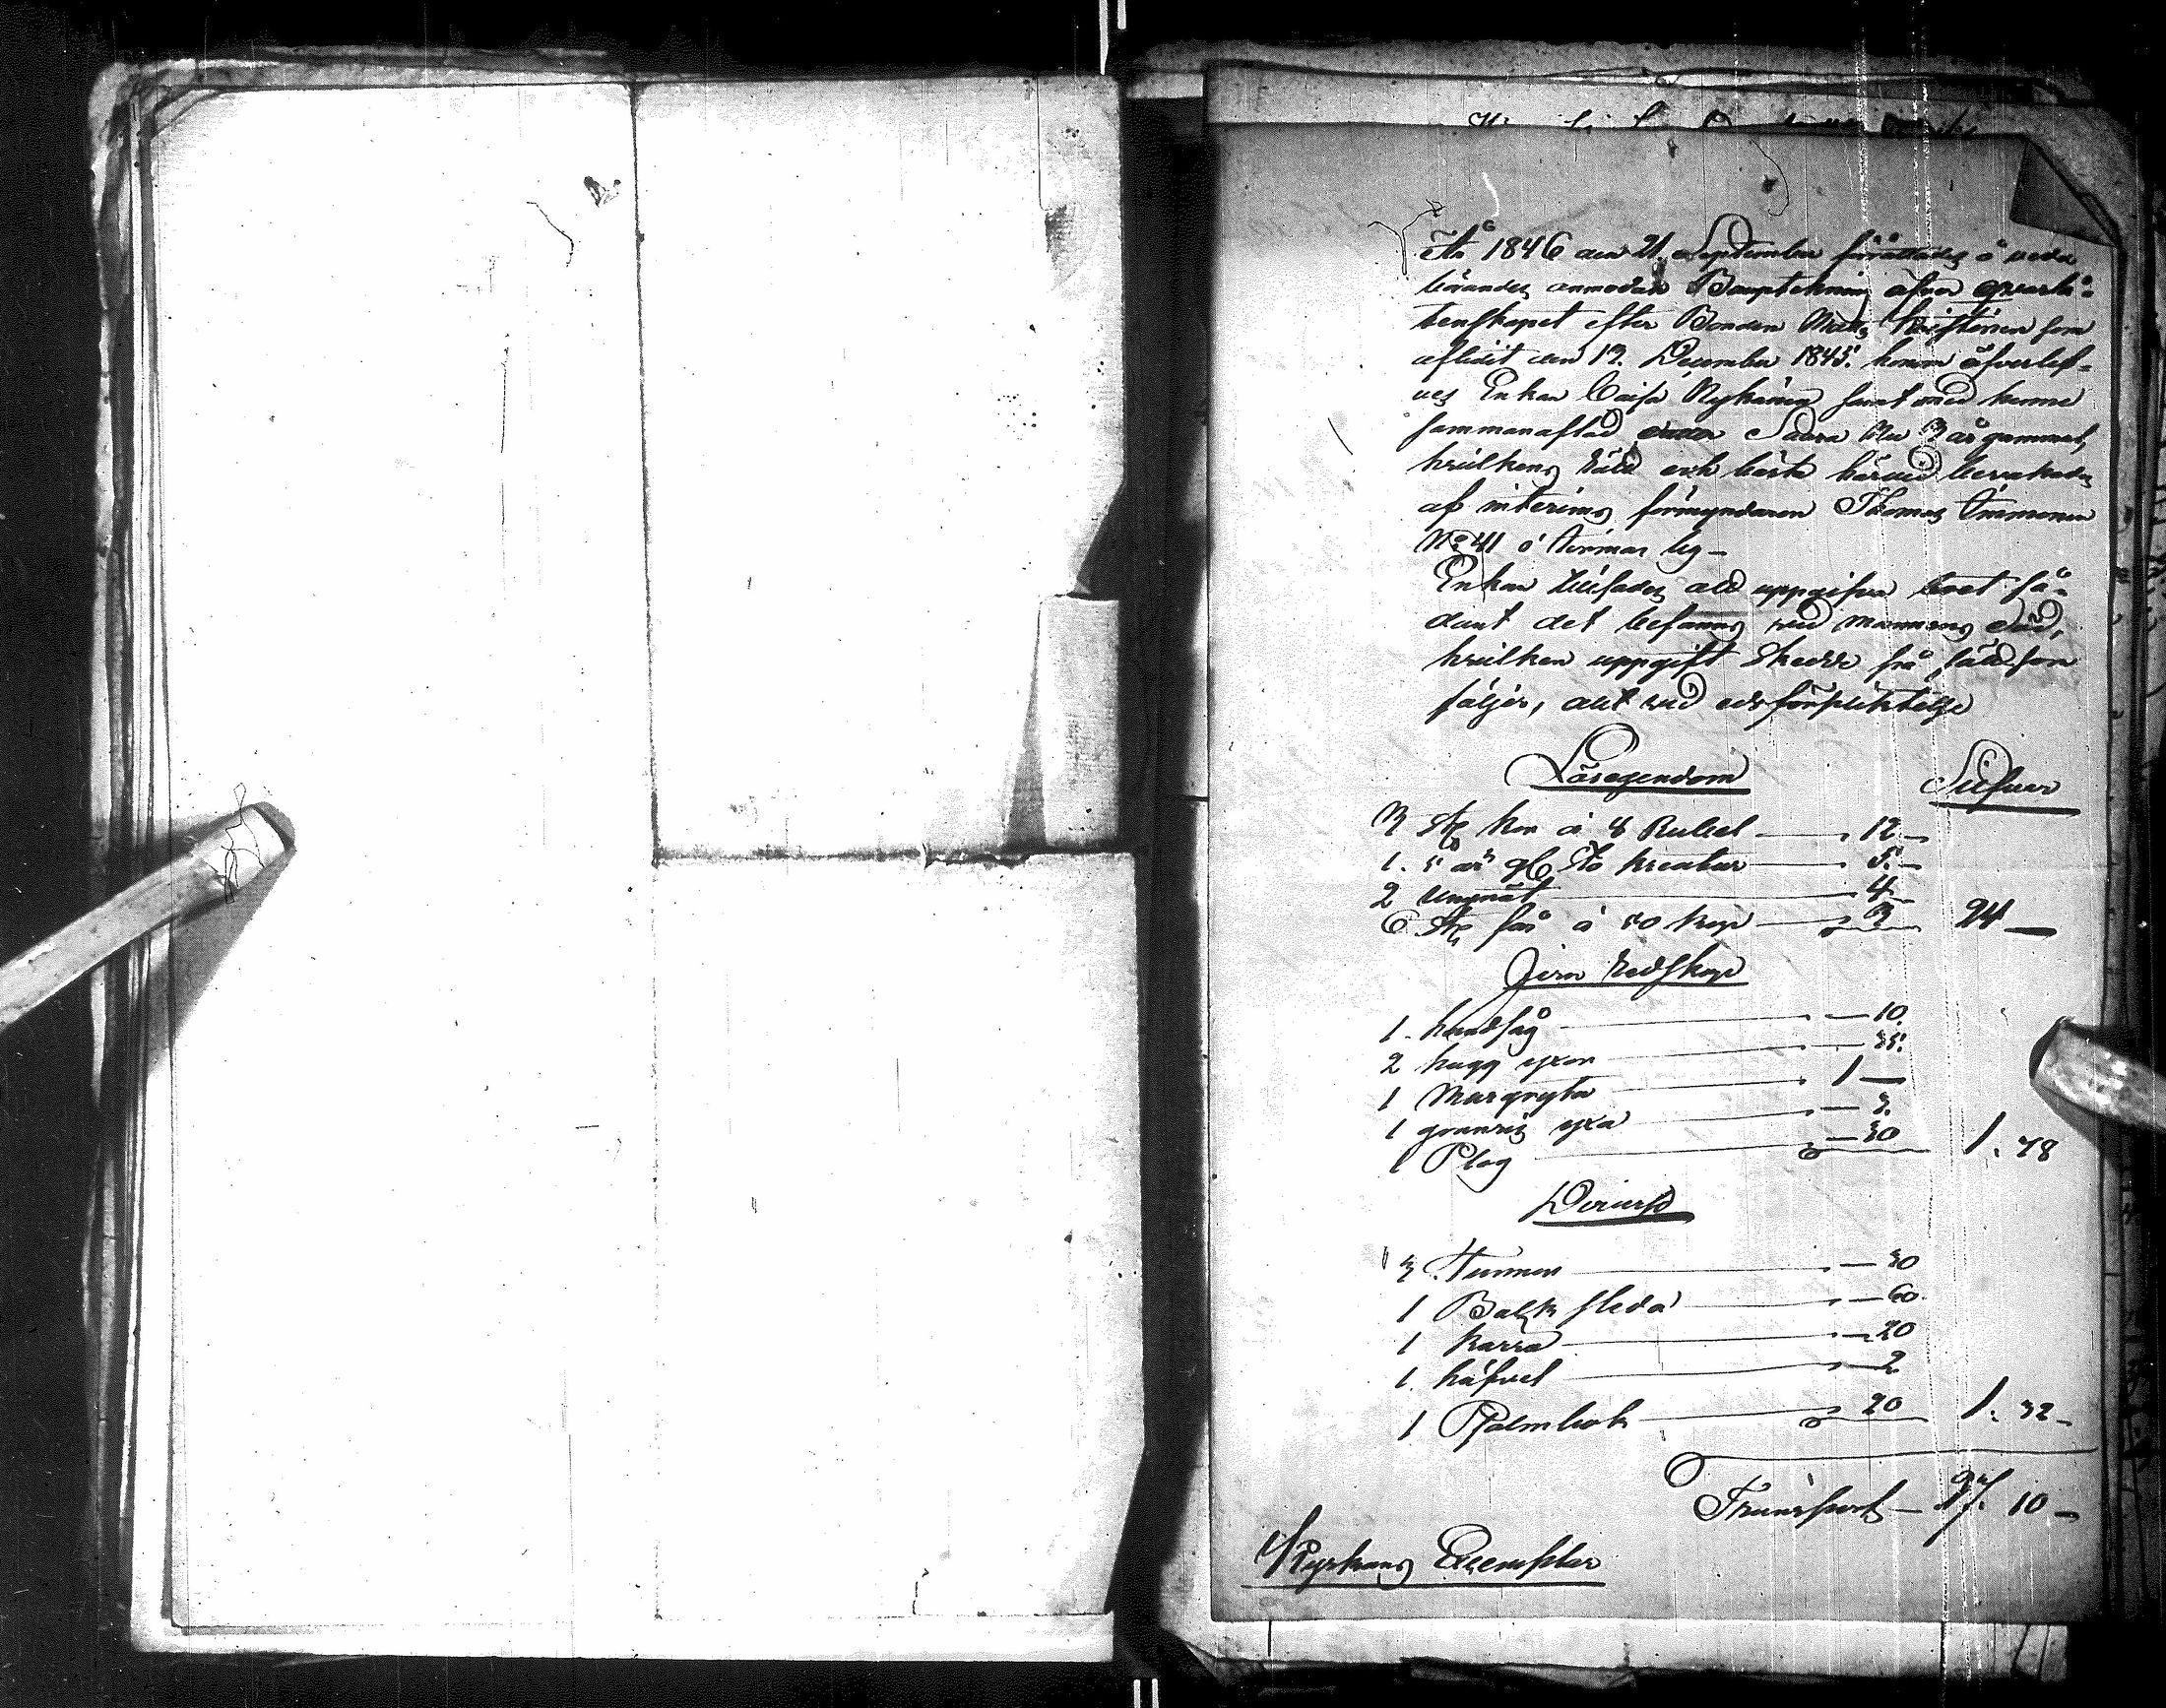 År 1846 den 21. September förättades å veder
börandes anmodan Bouptekning öfver qvarlå-
tenskapet efter Bonden Matts Kristonen som
aflidit den 19. December 1845. honom öfverlef-
ves Enkan Caisa Nykänen samt med henne
sammanaflad Saara Ulu 3 år gammal,
hvilkens rätt och bästa härvid bevakades
af interims förmyndaren Thomas Immonen
No 41 ö
Enkan tillsades att uppgifva boet så-
dant det befanns vid mannens död,
hvilken uppgift skedde på sätt som
följer, allt vid edsförpliktelse
Lösegendom Silfver
3 st. kor á 4 Rubel — 12 —
1. 5 år gl. Sto kreatur — 5. —
2 ungnöt — 4 —
6 st. får á 50 kop — 3 — 24 —
Jern redskap
1. handsåg — 10.
2 hugg yxor — 35.
1 Murgryta 1 —
1 yxa — 3.
1 Plog — 30 1. 78
Diverse
3 Tunnor — 30
1 Balk släda — 60
1 Karra — 20
1. häfvel — 2
1 Psalmbok — 20 1. 32 —
Transport — 27. 10 —
Kyrkans Exemplar